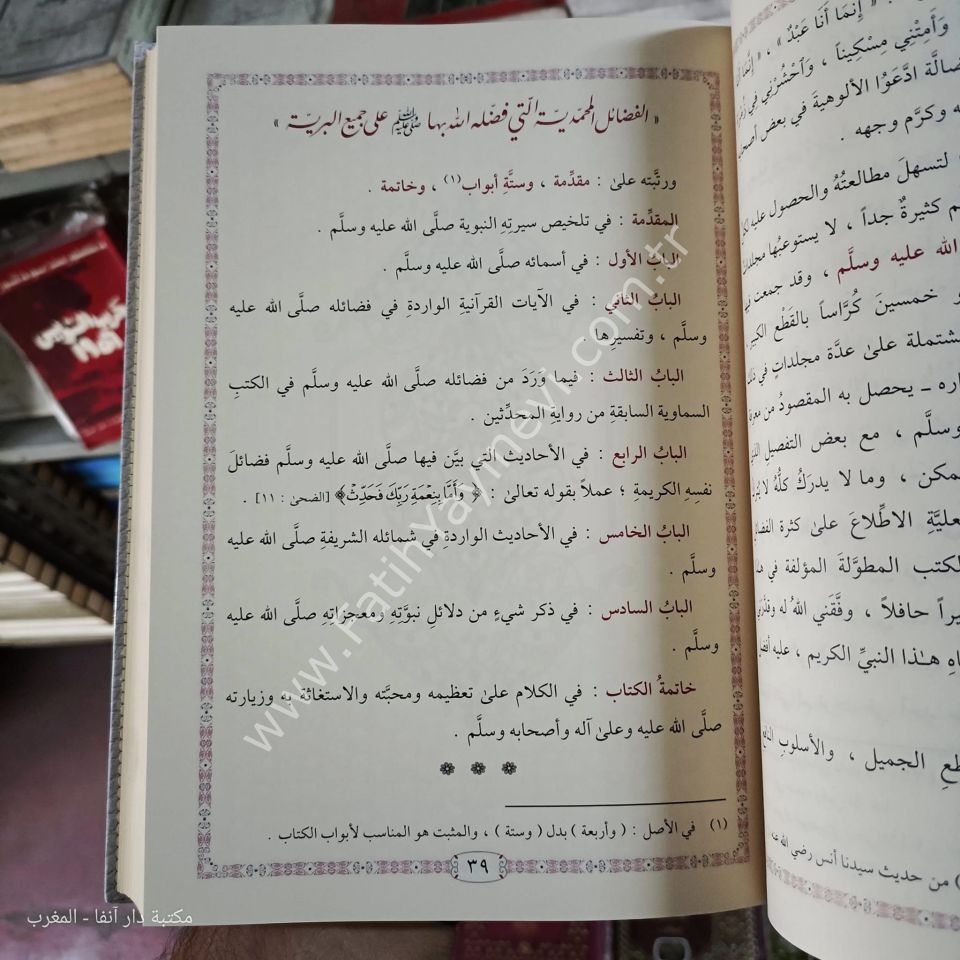 « الفضائل المحمدية التي فضله الله بها ﷺ على جميع البرية »
ورتَّبته علىٰ : مقدِّمة ، وستَّةِ أبواب(١) ، وخاتمة .
المقدِّمة : في تلخيص سيرتِهِ النبوية صلَّى الله عليه وسلَّم .
البابُ الأول : في أسمائه صلَّى الله عليه وسلَّم .
البابُ الثاني : في الآيات القرآنيةِ الواردةِ في فضائله صلَّى الله عليه
وسلَّم ، وتفسيرِها .
البابُ الثالث : فيما وَرَدَ من فضائله صلَّى الله عليه وسلَّم في الكتبِ
السماوية السابقةِ من روايةِ المحدِّثين .
البابُ الرابع : في الأحاديثِ التي بيَّن فيها صلَّى الله عليه وسلَّم فضائلَ
نفسِهِ الكريمةِ ؛ عملاً بقوله تعالىٰ : ﴿ وَأَمَّا بِنِعْمَةِ رَبِّكَ فَحَدِّثْ ﴾ [الضحىٰ : ١١] .
البابُ الخامس : في الأحاديث الواردةِ في شمائله الشريفةِ صلَّى الله عليه
وسلَّم .
البابُ السادس : في ذكر شيءٍ من دلائلِ نبوَّتِهِ ومعجزاتِهِ صلَّى الله عليه
وسلَّم .
خاتمةُ الكتاب : في الكلام علىٰ تعظيمه ومحبَّته والاستغاثة به وزيارته
صلَّى الله عليه وعلىٰ آله وأصحابه وسلَّم .
(١) في الأصل : ( وأربعة ) بدل ( وستة ) ، والمثبت هو المناسب لأبواب الكتاب .
٣٩
« إِنَّمَا أَنَا عَبْدٌ » ، « إِنَّمَا
وَأَمِتْنِي مِسْكِيناً ، وَاحْشُرْنِي فِي
ادَّعَوُا الألوهيةَ في بعض
وكرَّم وجهه .
لتسهلَ مطالعتُهُ والحصول عليه
كثيرةٌ جداً ، لا يستوعبُها مجلدات
الله عليه وسلَّم ، وقد جمعت
خمسينَ كُرَّاساً بالقَطْع الكبير
علىٰ عدَّة مجلداتٍ في
ـ يحصل به المقصودُ من
وسلَّم ، مع بعض التفصيلِ
، وما لا يدركُ كلُّهُ لا
الاطِّلاعَ علىٰ كثرة
الكتب المطوَّلة المؤلفة في
حافلاً ، وفَّقَني اللهُ له
هٰذا النبيِّ الكريم ، عليه
الجميل ، والأسلوبِ
) من حديث سيدنا أنس رضي الله عنه
www.FatihYayinevi.com.tr
مكتبة دار آنفا - المغرب